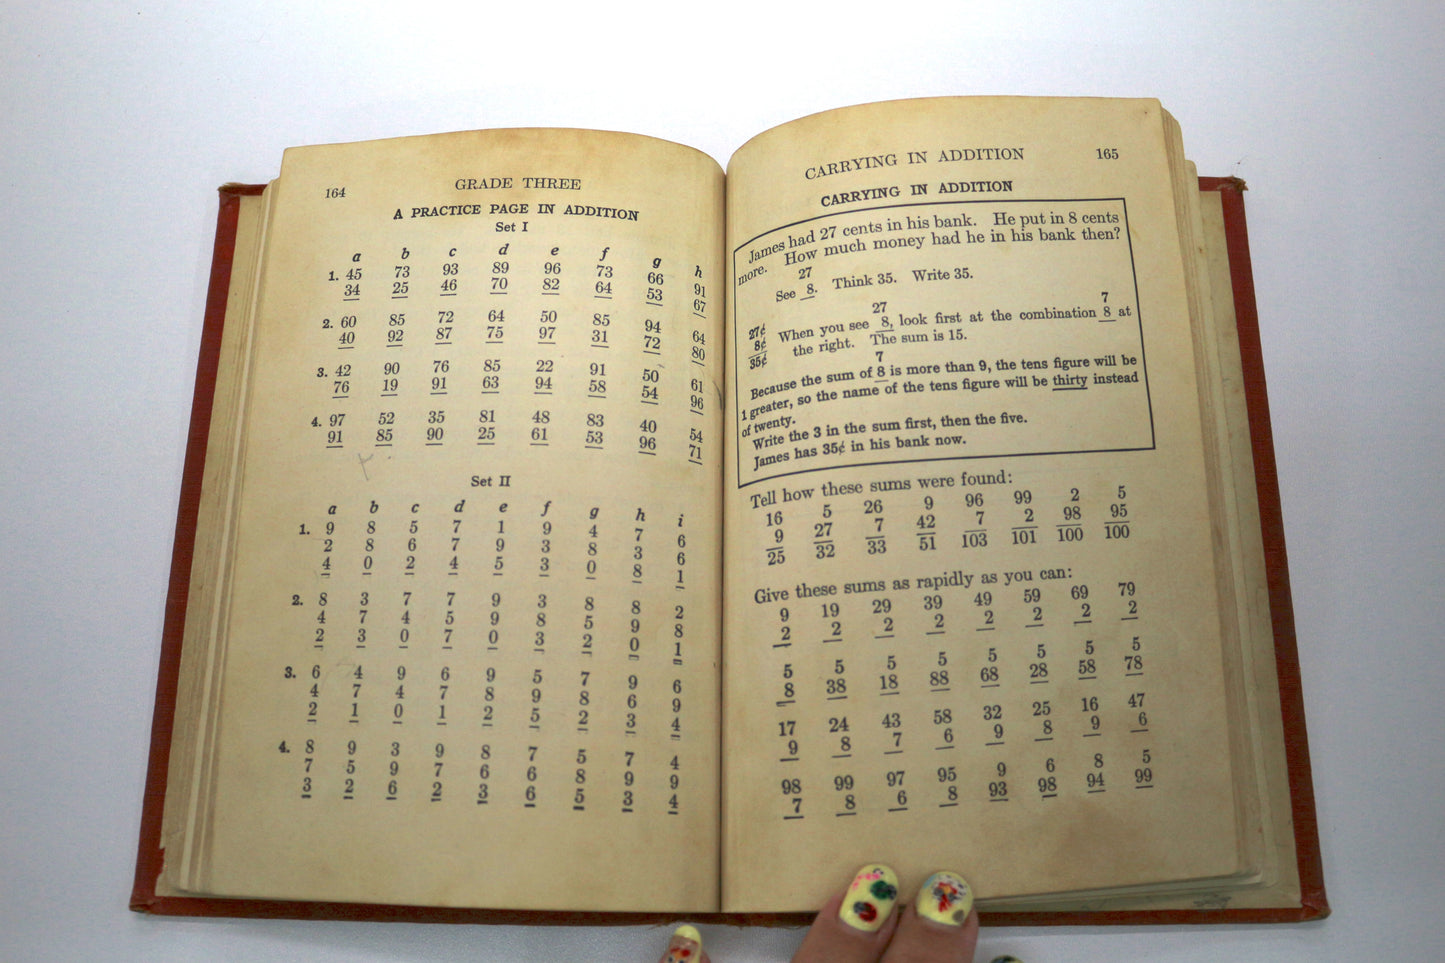 164
GRADE THREE
A PRACTICE PAGE IN ADDITION
Set I
a b c d e f g h
1. 45 73 93 89 96 73 66 91
34 25 46 70 82 64 53 67
2. 60 85 72 64 50 85 94 64
40 92 87 75 97 31 72 80
3. 42 90 76 85 22 91 50 61
76 19 91 63 94 58 54 96
4. 97 52 35 81 48 83 40 54
91 85 90 25 61 53 96 71
Set II
a b c d e f g h i
1. 9 8 5 7 1 9 4 7 6
2 8 6 7 9 3 8 3 6
4 0 2 4 5 3 0 8 1
2. 8 3 7 7 9 3 8 8 2
4 7 4 5 9 8 5 9 8
2 3 0 7 0 3 2 0 1
3. 6 4 9 6 9 5 7 9 6
4 7 4 7 8 9 8 6 9
2 1 0 1 2 5 2 3 4
4. 8 9 3 9 8 7 5 7 4
7 5 9 7 6 6 8 9 9
3 2 6 2 3 6 5 3 4
CARRYING IN ADDITION 165
CARRYING IN ADDITION
James had 27 cents in his bank. He put in 8 cents
more. How much money had he in his bank then?
27
See 8. Think 35. Write 35.
27 7
27¢ When you see 8, look first at the combination 8 at
8¢ the right. The sum is 15.
35¢
7
Because the sum of 8 is more than 9, the tens figure will be
1 greater, so the name of the tens figure will be thirty instead
of twenty.
Write the 3 in the sum first, then the five.
James has 35¢ in his bank now.
Tell how these sums were found:
16 5 26 9 96 99 2 5
9 27 7 42 7 2 98 95
25 32 33 51 103 101 100 100
Give these sums as rapidly as you can:
9 19 29 39 49 59 69 79
2 2 2 2 2 2 2 2
5 5 5 5 5 5 5 5
8 38 18 88 68 28 58 78
17 24 43 58 32 25 16 47
9 8 7 6 9 8 9 6
98 99 97 95 9 6 8 5
7 8 6 8 93 98 94 99